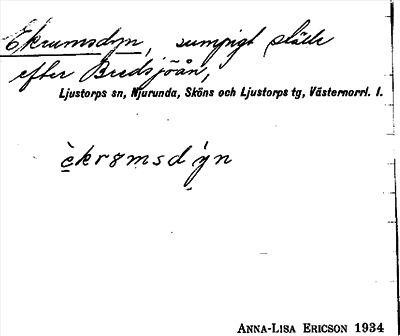 Ekrumsdyn, sumpigt ställe
efter Bredsjöån,
Ljustorps sn, Njurunda, Sköns och Ljustorps tg, Västernorrl. l.
èkrɤmsdýn
ANNA-LISA ERICSON 1934